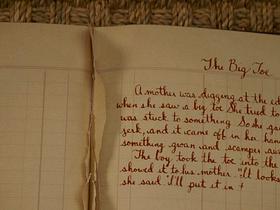 The Big Toe
A mother was digging at the ed
when she saw a big toe. She tried to
was stuck to something. So she ga
jerk, and it came off in her han
something groan and scamper aw
The boy took the toe into the
showed it to his mother. "It looks
she said. "I'll put it in t